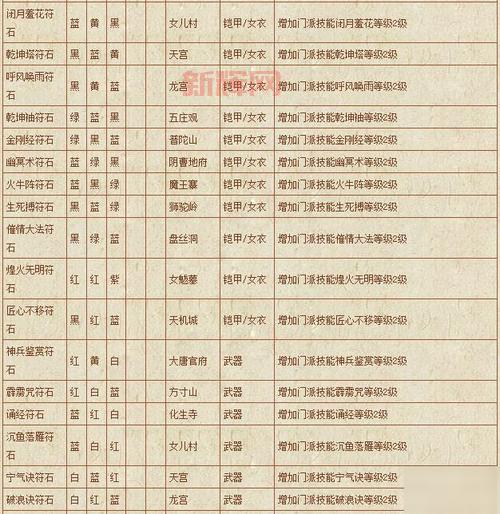 闭月羞花符石 蓝 黄 黑 女儿村 铠甲/女衣 增加门派技能闭月羞花等级2级
乾坤塔符石 黑 蓝 黑 天宫 铠甲/女衣 增加门派技能乾坤塔等级2级
呼风唤雨符石 黑 黄 蓝 龙宫 铠甲/女衣 增加门派技能呼风唤雨等级2级
新辉网
乾坤袖符石 绿 蓝 黑 五庄观 铠甲/女衣 增加门派技能乾坤袖等级2级
金刚经符石 绿 黑 蓝 普陀山 铠甲/女衣 增加门派技能金刚经等级2级
幽冥术符石 蓝 绿 黑 阴曹地府 铠甲/女衣 增加门派技能幽冥术等级2级
火牛阵符石 蓝 黑 绿 魔王寨 铠甲/女衣 增加门派技能火牛阵等级2级
生死搏符石 黑 蓝 绿 狮驼岭 铠甲/女衣 增加门派技能生死搏等级2级
催情大法符石 黑 绿 蓝 盘丝洞 铠甲/女衣 增加门派技能催情大法等级2级
煌火无明符石 红 红 紫 女魃墓 铠甲/女衣 增加门派技能煌火无明等级2级
匠心不移符石 黑 红 蓝 天机城 铠甲/女衣 增加门派技能匠心不移等级2级
神兵鉴赏符石 红 黄 白 大唐官府 武器 增加门派技能神兵鉴赏等级2级
霹雳咒符石 红 白 蓝 方寸山 武器 增加门派技能霹雳咒等级2级
诵经符石 蓝 红 白 化生寺 武器 增加门派技能诵经等级2级
沉鱼落雁符石 蓝 白 红 女儿村 武器 增加门派技能沉鱼落雁等级2级
宁气诀符石 白 蓝 红 天宫 武器 增加门派技能宁气诀等级2级
破浪诀符石 白 红 蓝 龙宫 武器 增加门派技能破浪诀等级2级